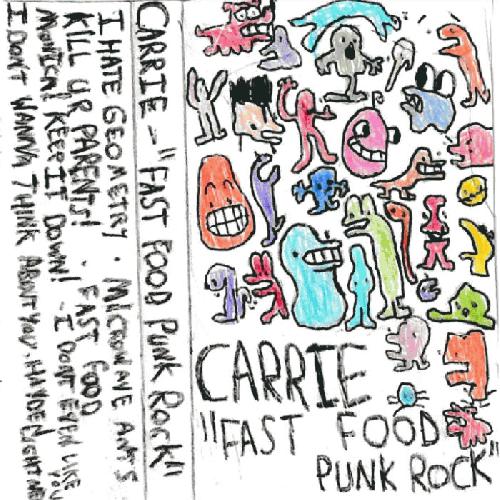 CARRIE
"FAST FOOD
PUNK ROCK"
CARRIE - "FAST FOOD PUNK ROCK"
I HATE GEOMETRY · MICROWAVE ANTS
KILL UR PARENTS! · FAST FOOD
MONICA! KEEP IT DOWN! - I DON'T EVEN LIKE YOU
I DON'T WANNA THINK ABOUT YOU -